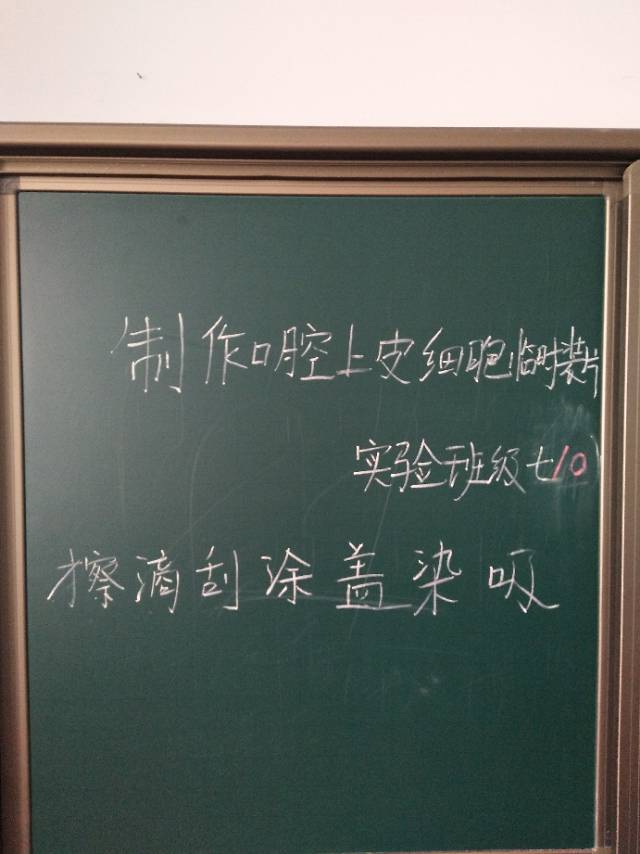 制作口腔上皮细胞临时装片
实验班级七10
擦滴刮涂盖染吸